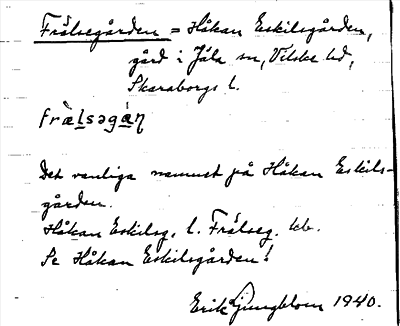 Frälsegården = Håkan Eskilsgården,
gård i Jäla sn, Vilske hd,
Skaraborgs l.
fràlsəgán
Det vanliga namnet på Håkan Eskils-
gården.
Håkan Eskilsg. l. Frälseg. kb.
Se Håkan Eskilsgården!
Erik Ljungblom 1940.